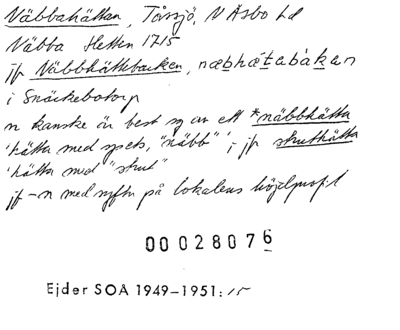 Väbbahättan, Tåssjö, N Åsbo hd
Väbba Hetten 1715
jfr Väbbhättebacken, næbhǽtabàkan
i Snäckebotorp
n kanske än best sg av ett *näbbhätta
'hätta med spets, "näbb"'; jfr struthätta
'hätta med "strut"
jfr -n med syftn på lokalens höjdprofil
00028076
Ejder SOÅ 1949-1951:15